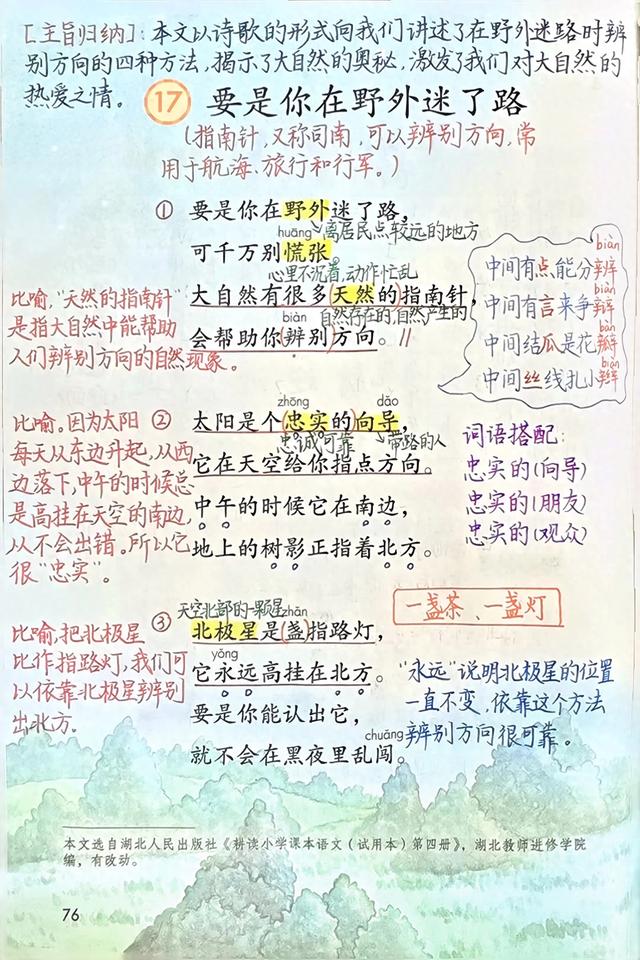 [主旨归纳]:本文以诗歌的形式向我们讲述了在野外迷路时辨
别方向的四种方法,揭示了大自然的奥秘,激发了我们对大自然的
热爱之情。
17 要是你在野外迷了路
(指南针,又称司南,可以辨别方向,常
用于航海、旅行和行军。)
① 要是你在野外迷了路,
离居民点较远的地方
huāng
可千万别慌张。
心里不沉着,动作忙乱
大自然有很多(天然的)指南针,
自然存在的,自然产生的
biàn
会帮助你(辨别)方向。//
比喻,"天然的指南针"
是指大自然中能帮助
人们辨别方向的自然现象。
biàn
中间有点,能分辨
biàn
中间有言来争辩
bàn
中间结瓜是花瓣
biàn
中间丝线扎小辫
zhōng dǎo
② 太阳是个(忠实的)向导,
忠诚可靠 带路的人
它在天空给你指点方向。
中午的时候它在南边,
地上的树影正指着北方。
比喻。因为太阳
每天从东边升起,从西
边落下,中午的时候总
是高挂在天空的南边,
从不会出错。所以它
很"忠实"。
词语搭配:
忠实的(向导)
忠实的(朋友)
忠实的(观众)
一盏茶、一盏灯
天空北部的一颗星 zhǎn
③ 北极星是(盏)指路灯,
yǒng
它永远高挂在北方。
要是你能认出它,
chuǎng
就不会在黑夜里乱闯。
比喻,把北极星
比作指路灯,我们可
以依靠北极星辨别
出北方.
"永远"说明北极星的位置
一直不变,依靠这个方法
辨别方向很可靠。
本文选自湖北人民出版社《耕读小学课本语文(试用本)第四册》,湖北教师进修学院
编,有改动。
76